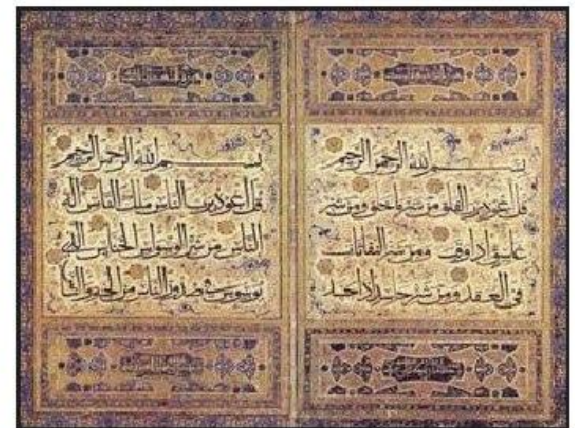 بسم الله الرحمن الرحيم
قل اعوذ برب الفلق من شر ما خلق ومن شر
غاسق اذا وقب ومن شر النفاثات
فى العقد ومن شر حاسد اذا حسد
بسم الله الرحمن الرحيم
قل اعوذ برب الناس ملك الناس اله
الناس من شر الوسواس الخناس الذى
يوسوس فى صدور الناس من الجنة والناس